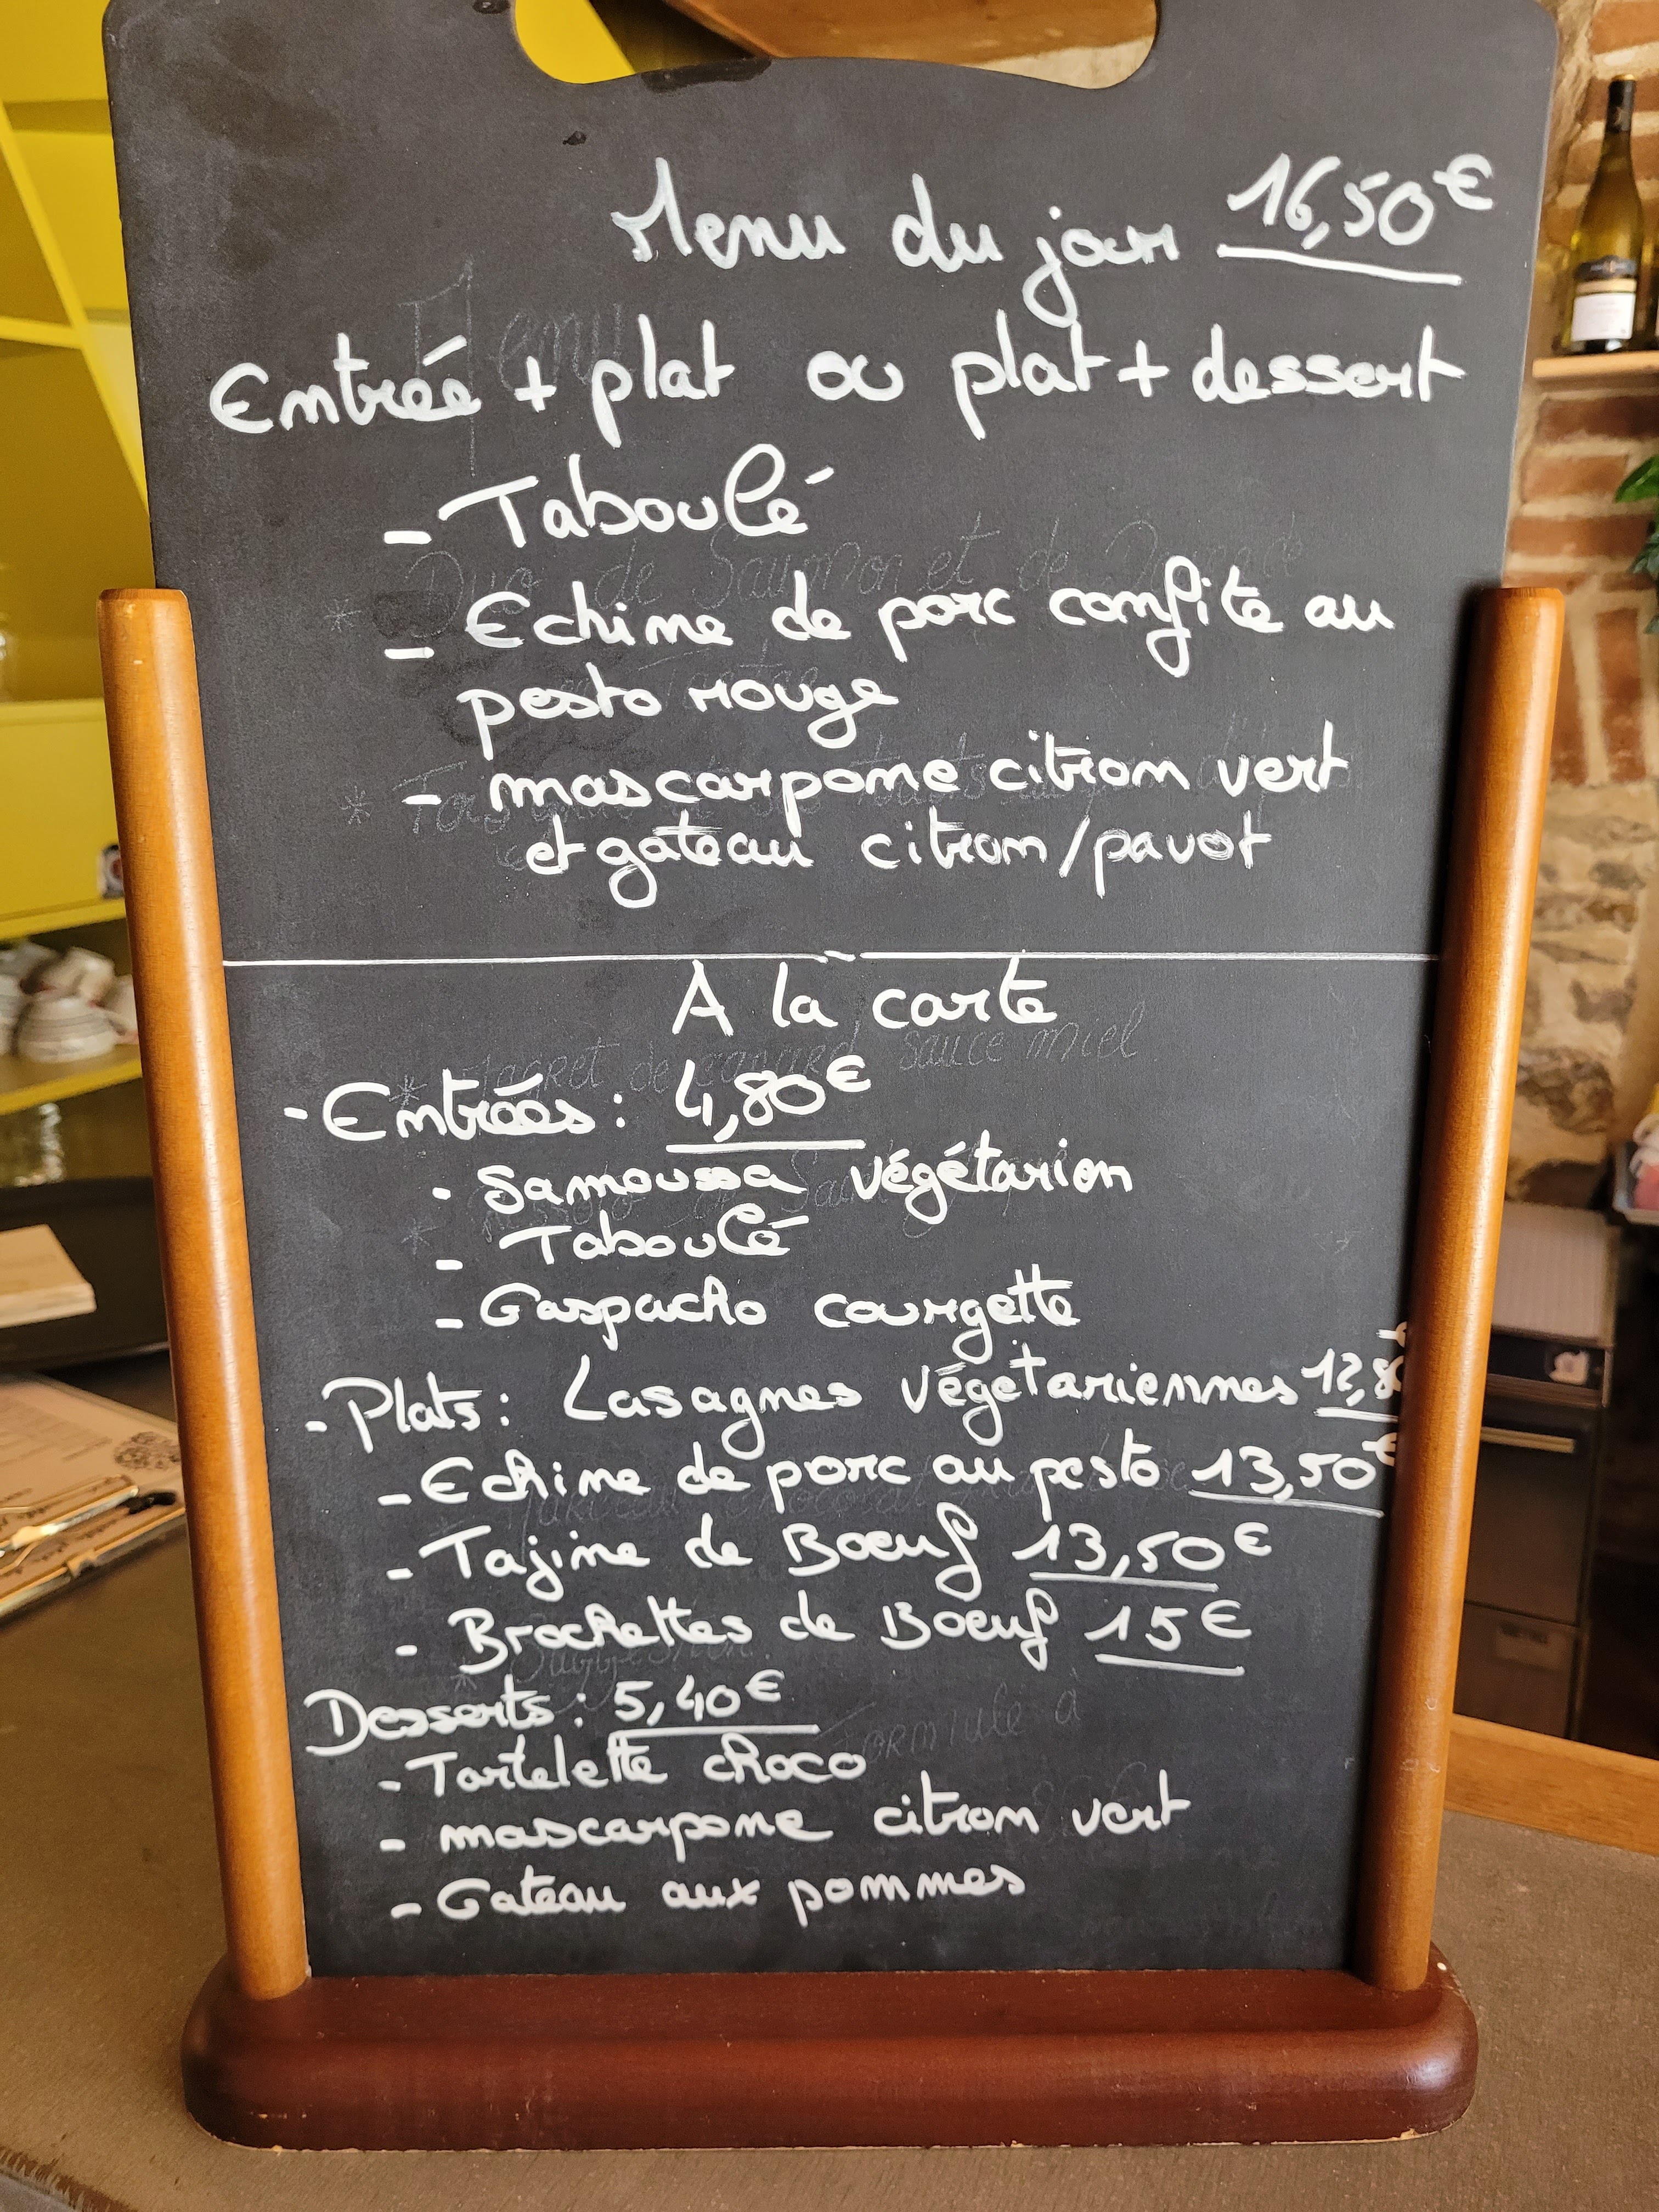 Menu du jour 16,50€
Entrée + plat ou plat + dessert
- Taboulé
- Echine de porc confite au
pesto rouge
- mascarpone citron vert
et gâteau citron/pavot
A la carte
- Entrées : 4,80€
- Samoussa végétarien
- Taboulé
- Gaspacho courgette
- Plats : Lasagnes végétariennes 12,80
- Echine de porc au pesto 13,50€
- Tajine de Boeuf 13,50€
- Brochettes de Boeuf 15€
Desserts : 5,40€
- Tartelette choco
- mascarpone citron vert
- Gateau aux pommes